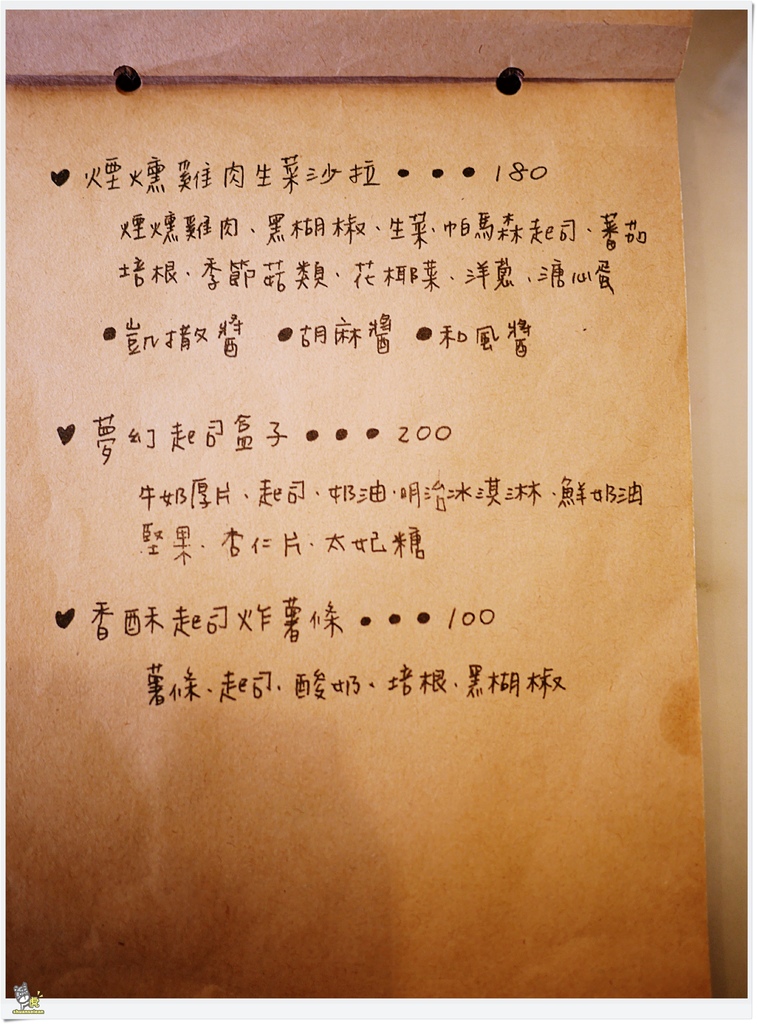 ♥ 煙燻雞肉生菜沙拉 • • • 180
煙燻雞肉、黑胡椒、生菜、帕馬森起司、蕃茄
培根、季節菇類、花椰菜、洋蔥、溏心蛋
•凱撒醬 •胡麻醬 •和風醬
♥ 夢幻起司盒子 • • • 200
牛奶厚片、起司、奶油、明治冰淇淋、鮮奶油
堅果、杏仁片、太妃糖
♥ 香酥起司炸薯條 • • • 100
薯條、起司、酸奶、培根、黑胡椒